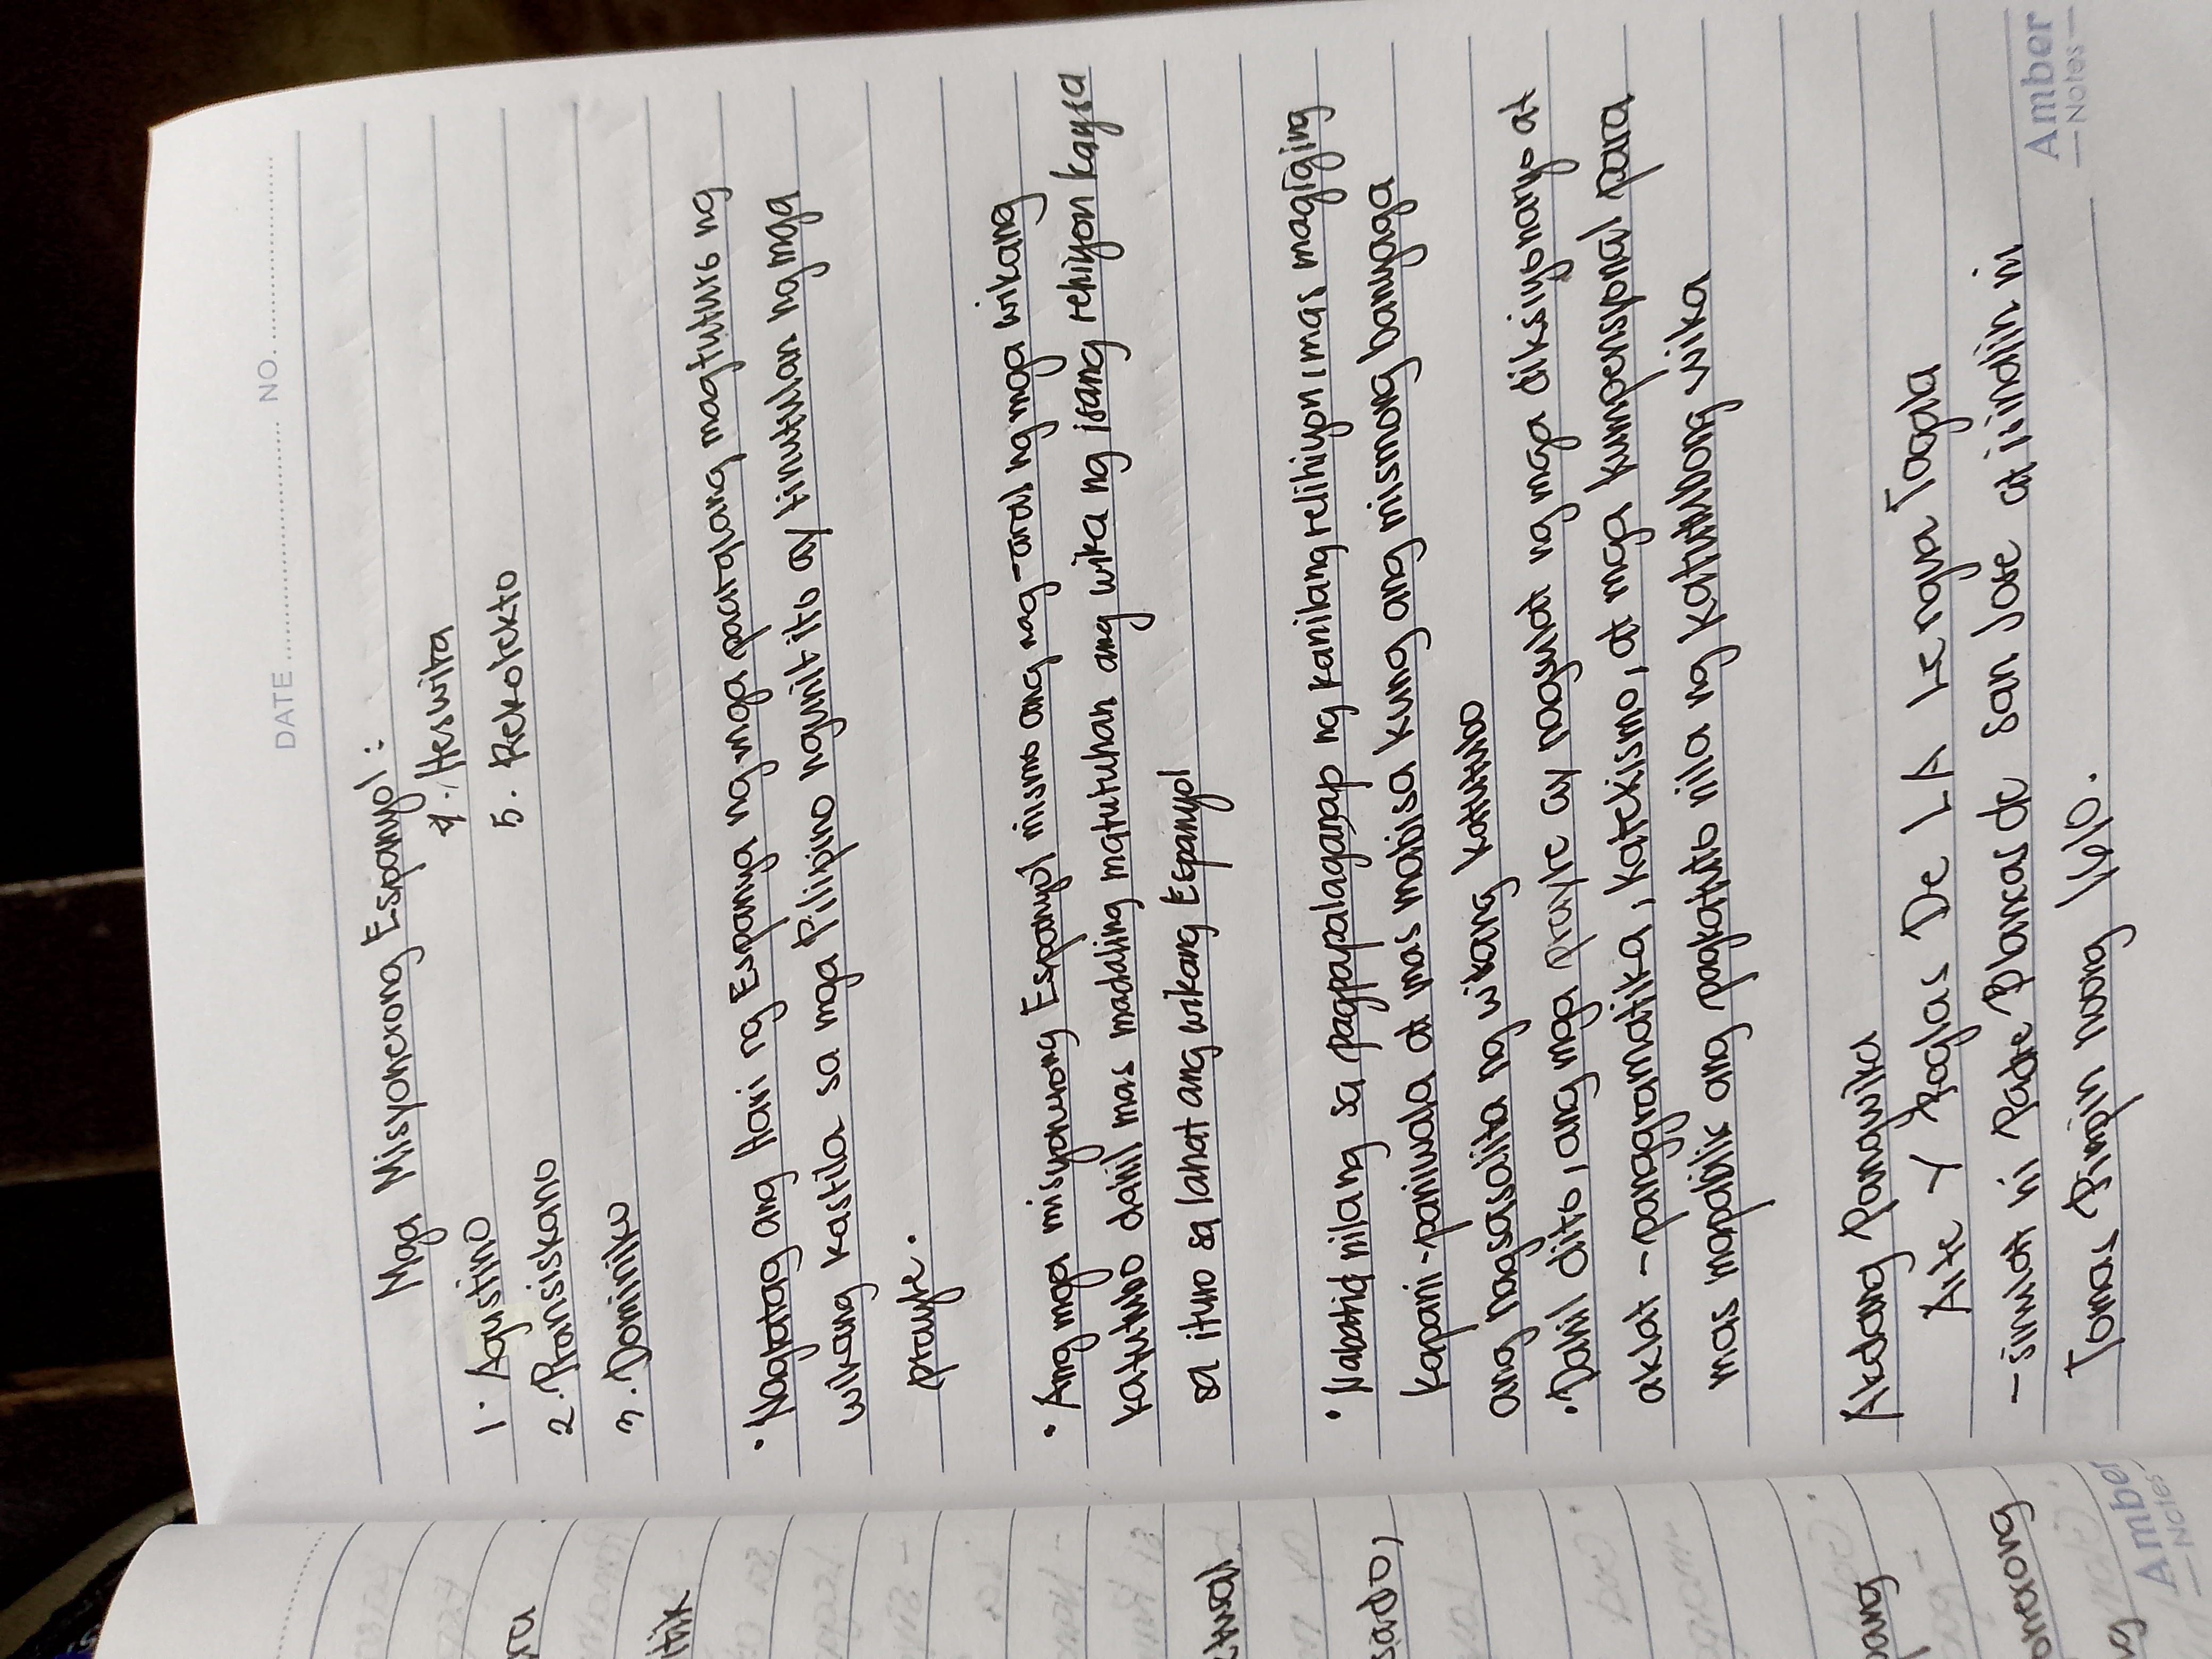 DATE ............ NO. ............
Mga Misyonerong Espanyol :
1. Agustino
4. Heswita
2. Pransiskano
5. Rekolekto
3. Dominiko
• Nagatag ang Hari ng Espanya ng mga paaralang magtuturo ng
wikang kastila sa mga Pilipino ngunit ito ay tinutulan ng mga
prayle.
• Ang mga misyonerong Espanyol mismo ang nag-aral ng mga wikang
katutubo dahil mas madaling matutuhan ang wika ng isang rehiyon kaysa
sa ituro sa lahat ang wikang Espanyol
• Nabatid nilang sa pagpapalaganap ng kanilang relihiyon, mas magiging
kapani-paniwala at mas mabisa kung ang mismong banyaga
ang nagsasalita ng wikang katutubo
• Dahil dito, ang mga prayle ay nagsulat ng mga diksiyonaryo at
aklat -panggramatika, katekismo, at mga kumpensiyonal para
mas mapabilis ang pagkatuto nila ng katutubong wika
Akdang Pamwika
Arte Y Reglas De LA Lengua Tagala
- sinulat ni Padre Blancas de San Jose at isinalin ni
Tomas Pinpin noong 1610.
Amber
— Notes —
itik
sado,
Amber